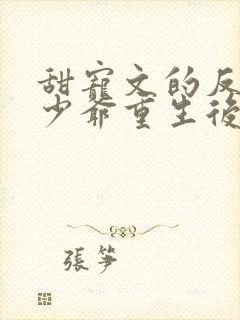 甜寵文的反
少爺重生後
張笋